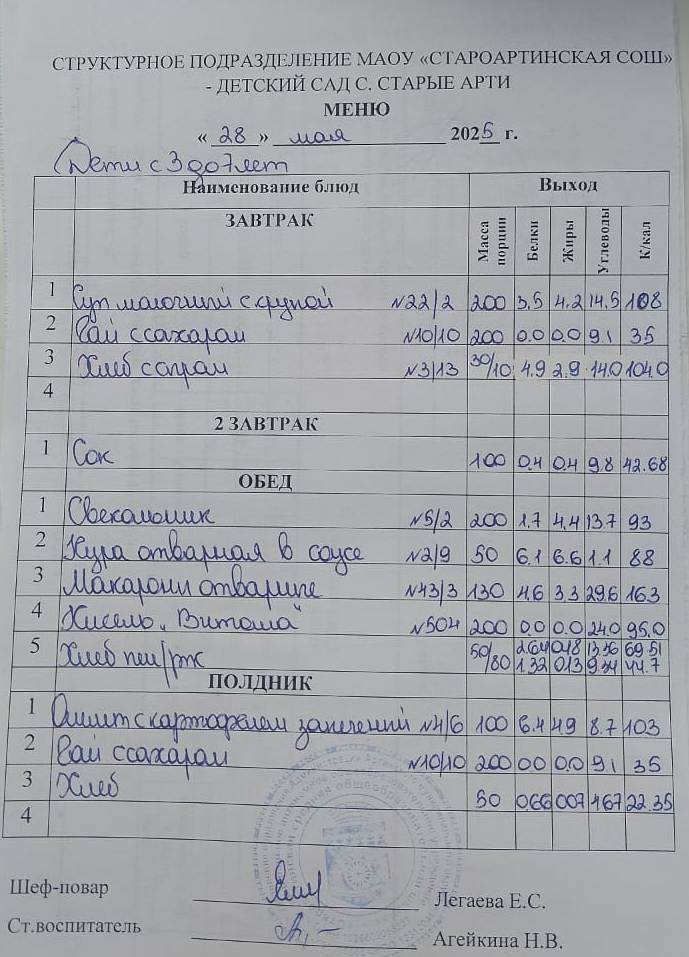 СТРУКТУРНОЕ ПОДРАЗДЕЛЕНИЕ МАОУ «СТАРОАРТИНСКАЯ СОШ»
- ДЕТСКИЙ САД С. СТАРЫЕ АРТИ
МЕНЮ
« 28 » мая 2025 г.
Дети с 3 до 7 лет
Наименование блюд Выход
ЗАВТРАК Масса порции Белки Жиры Углеводы К/кал
1 Суп молочный с крупой №22/2 200 3.5 4.2 14.5 108
2 Чай с сахаром №10/10 200 0.0 0.0 9.1 35
3 Хлеб с сыром №3/13 30/10 4.9 2.9 14.0 104.0
4
2 ЗАВТРАК
1 Сок 100 0.4 0.4 9.8 42.68
ОБЕД
1 Свекольник №5/2 200 1.7 4.4 13.7 93
2 Кура отварная в соусе №2/9 50 6.1 6.6 1.1 88
3 Макароны отварные №43/3 130 4.6 3.3 29.6 163
4 Кисель „Витоша" №504 200 0.0 0.0 24.0 95.0
5 Хлеб пш/рж 50/80 2.64 0.48 13.36 69.51
1.32 0.13 9.34 44.7
ПОЛДНИК
1 Омлет с картофелем запеченный №4/6 100 6.4 4.9 8.7 103
2 Чай с сахаром №10/10 200 0.0 0.0 9.1 35
3 Хлеб 50 0.66 0.07 4.67 22.35
4
Шеф-повар Легаева Е.С.
Ст.воспитатель Агейкина Н.В.